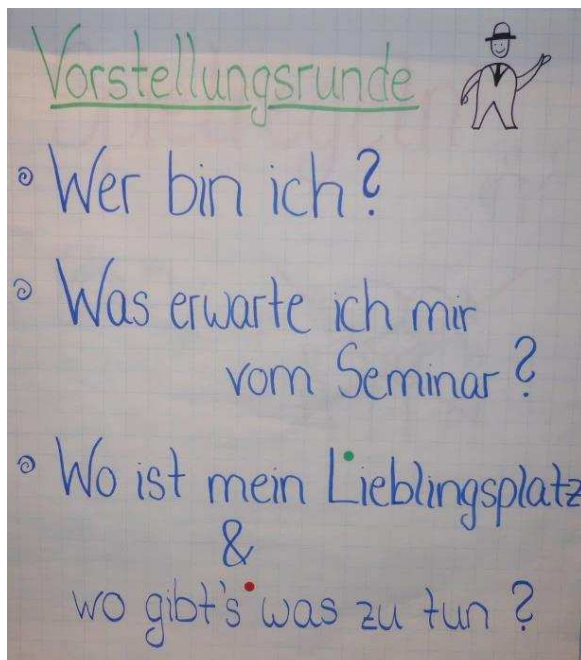 Vorstellungsrunde
Wer bin ich?
Was erwarte ich mir
vom Seminar?
Wo ist mein Lieblingsplatz
&
wo gibt's was zu tun?